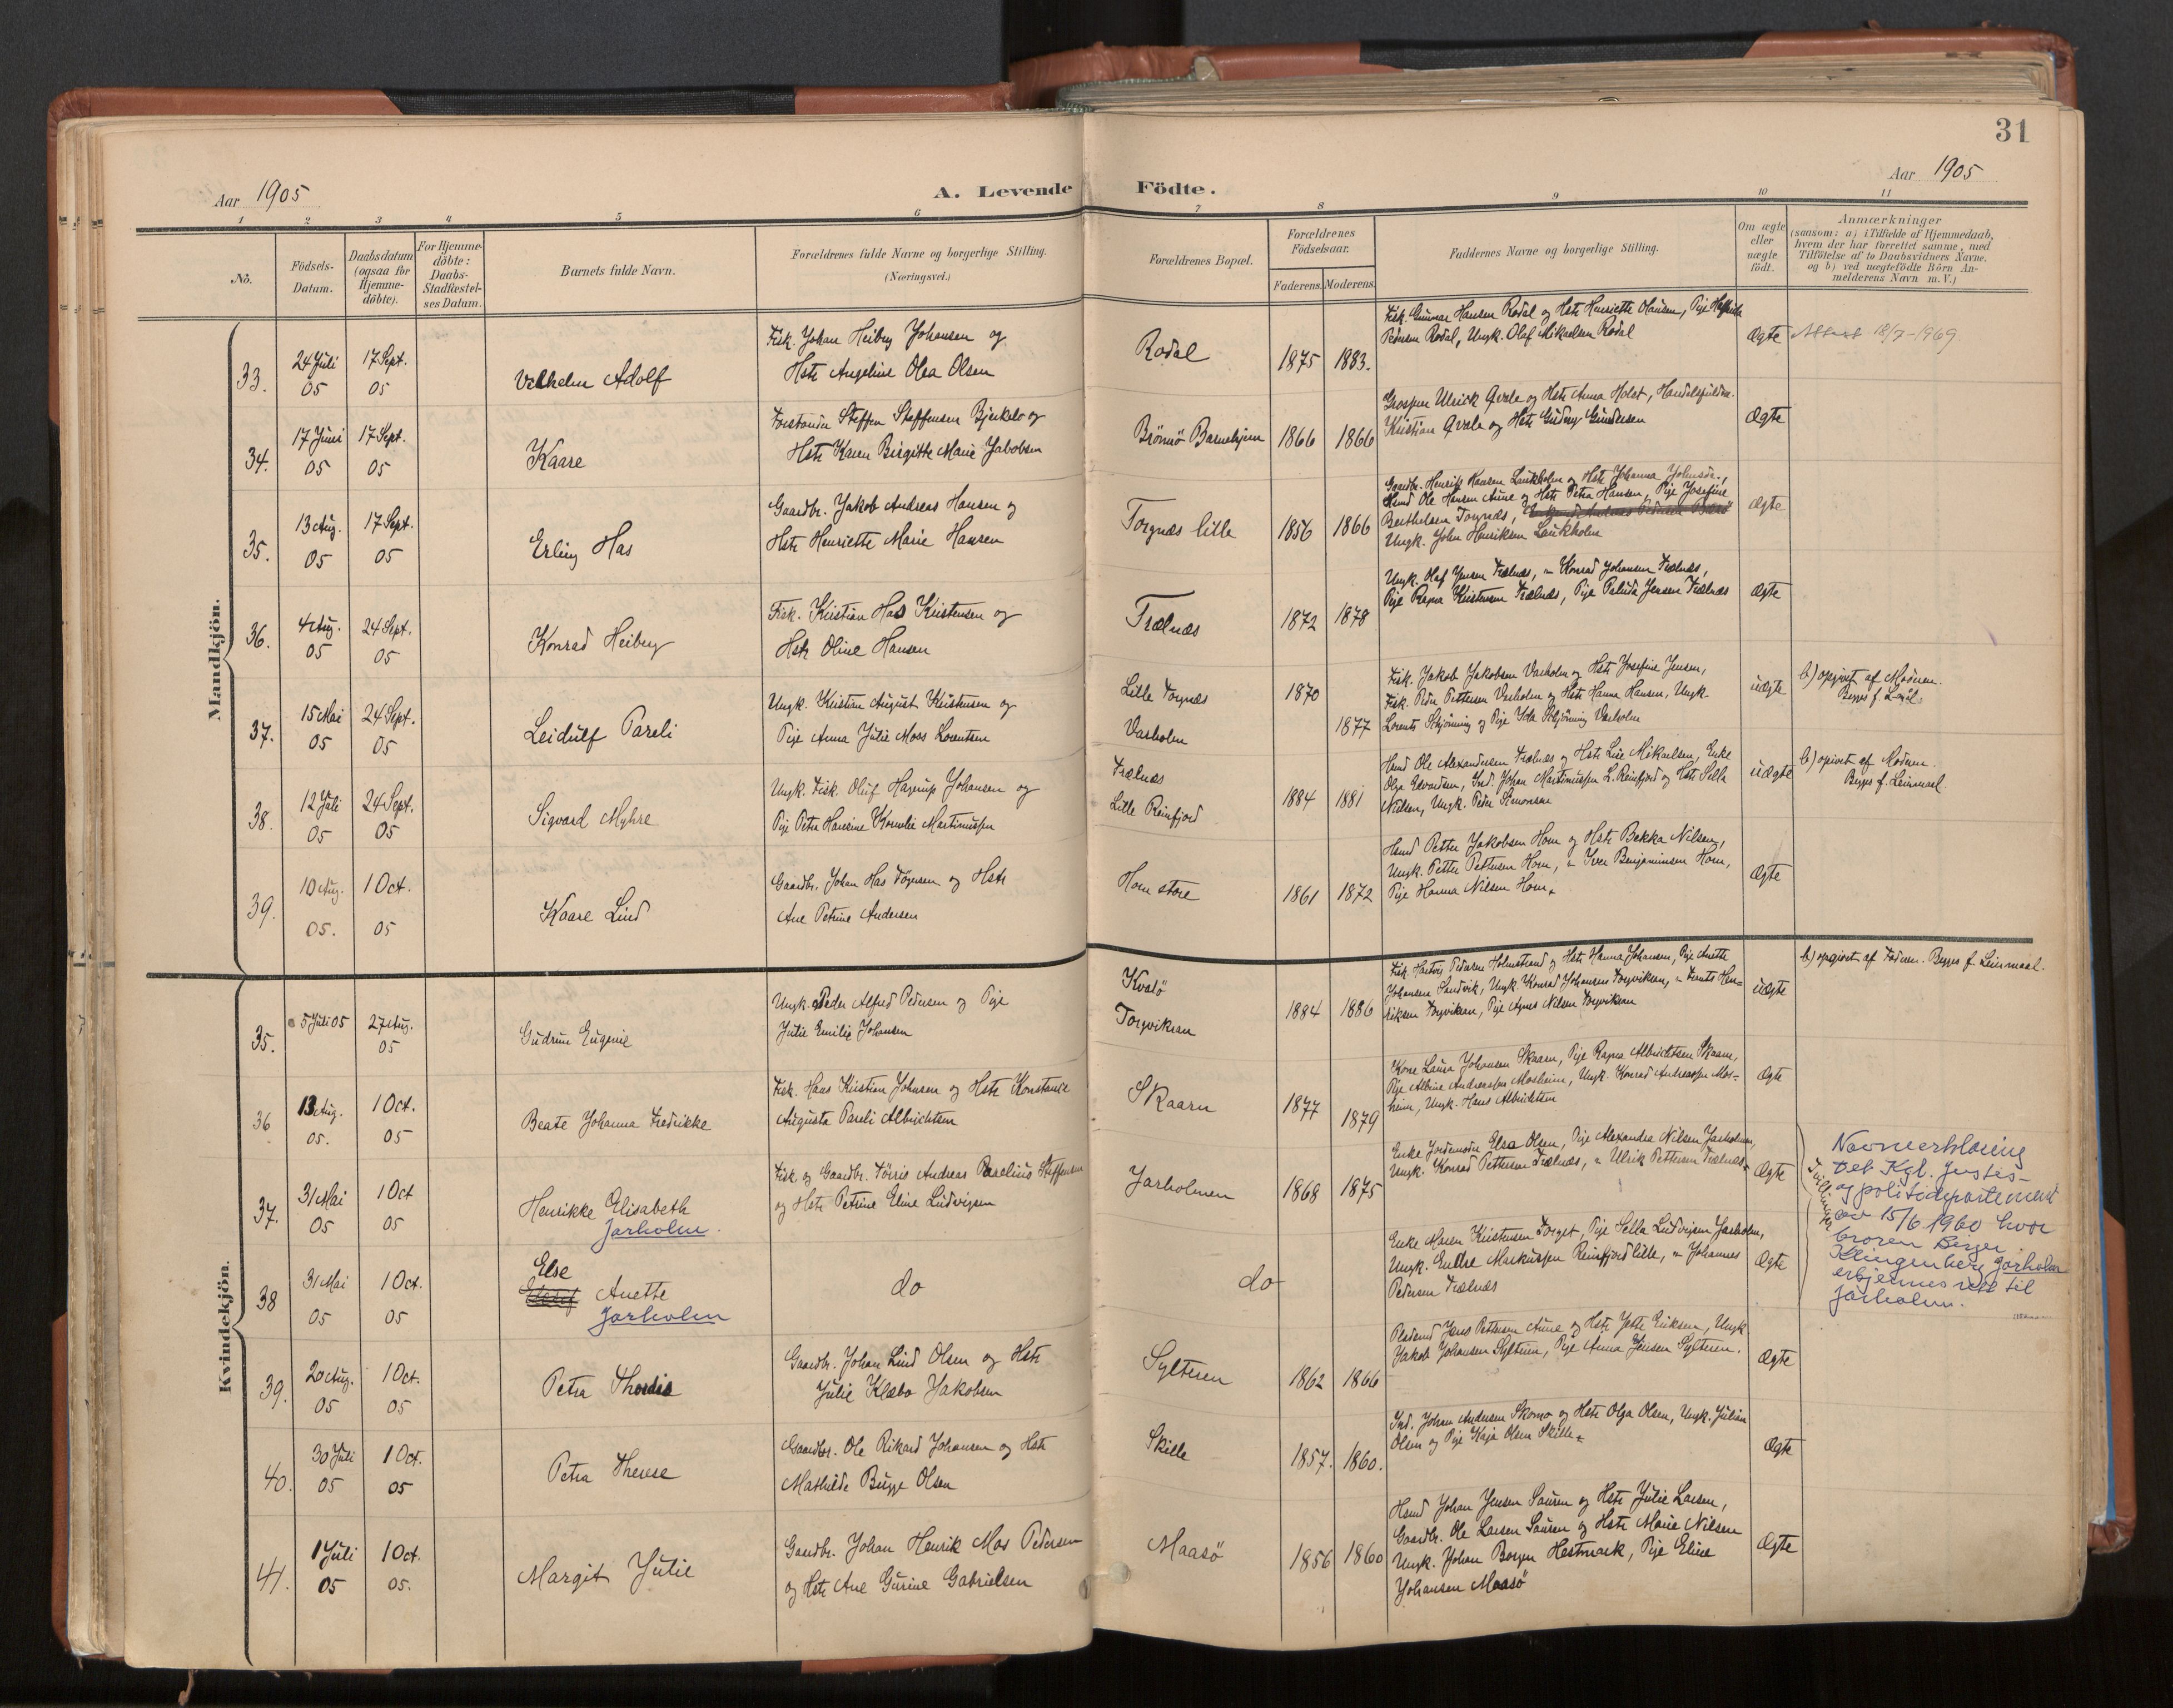 31
Aar 1905
A. Levende Födte.
Aar 1905
1 2 3 4 5 6 7 8 9 10 11
No.
Födsels-Datum.
Daabsdatum (ogsaa for Hjemmedöbte).
For Hjemmedöbte: Daabs-Stadfæstelses Datum.
Barnets fulde Navn.
Forældrenes fulde Navne og borgerlige Stilling. (Næringsvei.)
Forældrenes Bopæl.
Forældrenes Födselsaar.
Faderens. Moderens.
Faddernes Navne og borgerlige Stilling.
Om ægte eller uægte födt.
Anmærkninger
(saasom: a) i Tilfælde af Hjemmedaab,
hvem der har forrettet samme, med
Tilföielse af to Daabsvidners Navne.
og b) ved uægtefödte Börn An-
melderens Navn m. V.)
Mandkjön.
33. 24 Juli 05 17 Sept. 05 Vilhelm Adolf
Fisk. Johan Heiberg Johansen og
Hstr Angeline Olea Olsen
Rodal 1875 1883.
Fisk. Gunnar Hansen Rodal og Hstr Henriette Hansen, Pige
Pedersen Rodal, Ungk. Olaf Mikaelsen Rodal
Ægte
Attest 18/7-1969
34. 17 Juni 05 17 Sept. 05 Kaare
Forstander Steffen Steffensen Bjerkelo og
Hstr Karen Birgitte Marie Jakobsen
Brönnö Barnehjem 1866 1866
Ulrick Qvale og Hstr Anna Holst,
Kristian Qvale og Hstr Gudny Gundersen
Ægte
35. 13 Aug. 05 17 Sept. 05 Erling Has
Gaardbr. Jakob Andreas Hansen og
Hstr Henriette Marie Hansen
Torgnæs lille 1856 1866
Gaardbr. Henrik Hansen Laukholm og Hstr Johanna
Hmd Ole Hansen Aune og Hstr Petra Hansen, Pige Josefine
Berthelsen Torgnæs,
Ungk. John Henriksen Laukholm
Ægte
36. 4 Aug. 05 24 Sept. 05 Konrad Heiberg
Fisk. Kristian Has Kristensen og
Hstr Oline Hansen
Trælnæs 1872 1878
Ungk. Olaf Jensen Trælnæs, " Konrad Johansen Trælnæs,
Pige Ragna Kristensen Trælnæs, Pige Palida Jensen Trælnæs
Ægte
37. 15 Mai 05 24 Sept. 05 Leidulf Pareli
Ungk. Kristian August Kristensen og
Pige Anna Julie Moss Lorentsen
Lille Torgnæs
Varholm
1870
1877
Fisk. Jakob Jakobsen Varholm og Hstr Josefine Jensen,
Fisk. Peder Pettersen Varholm og Hstr Hanna Hansen, Ungk.
Lorents Schjönning og Pige Ida Schjönning Varholm
uægte
b) opgivet af Moderen.
Begges f. Leierm.
38. 12 Juli 05 24 Sept. 05 Sigvard Myhre
Ungk. Fisk. Oluf Hagerup Johansen og
Pige Petra Hansine Kornelie Martinussen
Trælnæs
Lille Reinfjord
1884 1881
Hmd Ole Alexandersen Trælnæs og Hstr Line Mikaelsen, Enke
Olga Edvardsen, Ind. Johan Martinussen L. Reinfjord og Hstr Sella
Nielsen, Ungk. Peder Simonsen
uægte
b) opivet af Moderen.
Begges f. Leiermaal.
39. 10 Aug. 05. 1 Oct. 05 Kaare Lind
Gaardbr. Johan Has Törgersen og Hstr
Ane Petrine Andersen
Horn store 1861 1872
Hmd Petter Jakobsen Horn og Hstr Bekka Nilsen,
Ungk. Petter Pettersen Horn, " Iver Benjaminsen Horn,
Pige Hanna Nilsen Horn.
Ægte
Kvindekjön.
35. 5 Juli 05 27 Aug. 05 Gudrun Eugenie
Ungk. Peder Alfred Pedersen og Pige
Julie Emilie Johansen
Kvalö
Torgvikran
1884 1886
Fisk. Hartvig Pedersen Holmstrand og Hstr Hanna Johansen, Pige Anette
Johansen Sandvik, Ungk. Konrad Johansens Torgvikran, " Frants Hen-
riksen Torgvikran, Pige Agnes Nilsen Torgvikran
uægte
b) opgivet af Faderen. Begges f. Leiermaal.
36 13 Aug. 05. 1 Oct. 05 Beate Johanna Fredrikke
Fisk. Hans Kristian Johnsen og Hstr Konstanse
Augusta Pareli Albrichtsen
Skaarn 1877 1879
Kone Laura Johansen Skaarn, Pige Ragna Albrichtsen Skaarn,
Pige Albine Andreassen Mosheim, Ungk. Konrad Andreassen Mos-
heim, Ungk. Hans Albrichtsen
Ægte
37. 31 Mai 05 1 Oct 05 Henrikke Elisabeth
Jarholm.
Fisk og Gaardbr. Törris Andreas Parelius Steffensen
og Hstr Petrine Eline Ludvigsen
Jarholmen 1868 1875
Enke Jordemoder Elsa Olsen, Pige Alexandra Nilsen Jarholmen,
Ungk. Konrad Pettersen Trælnæs, " Ulrik Pettersen Trælnæs
Ægte
Tvillinger
Navneerklæring
Det Kgl. Justis-
og politidepartement
av 15/6 1960 hvor
broren Birger
Klingenberg Jarholm
erkjennes rett til
Jarholm.
38 31 Mai 05 1 Oct. 05 Else Anette
Jarholm
do
do
Enke Maren Kristensen Torget, Pige Sella Ludvigsen Jarholm,
Ungk. Endre Markussen Reinfjord lille, " Johannes
Pedersen Trælnæs
Ægte
39. 20 Aug. 05 1 Oct. 05 Petra Thordis
Gaardbr. Johan Lind Olsen og Hstr
Julie Klæbo Jakobsen
Sylteren 1862 1866
Pladsmd Jens Pettersen Aune og Hstr Jette Eriksen, Ungk
Jakob Johansen Sylteren, Pige Anna Jensen Sylteren.
Ægte
40. 30 Juli 05 1 Oct. 05 Petra Therese
Gaardbr. Ole Rikard Johansen og Hstr
Mathilde Bugge Olsen
Skille 1857. 1860.
Ind. Johan Andersen Skomo og Hstr Olga Olsen, Ungk. Julian
Olsen og Pige Kaja Olsen Skille.
Ægte
41. 1 Juli 05 1 Oct. 05. Margit Julie
Gaardbr. Johan Henrik Mos Pedersen
og Hstr Ane Gurine Gabrielsen
Maasö 1856 1860
Hmd Johan Jensen Sauren og Hstr Julie Larsen,
Gaardbr. Ole Larsen Sauren og Hstr Marie Nilsen
Ungk. Johan Borgen Hestmark, Pige Eline
Johansen Maasö
Ægte